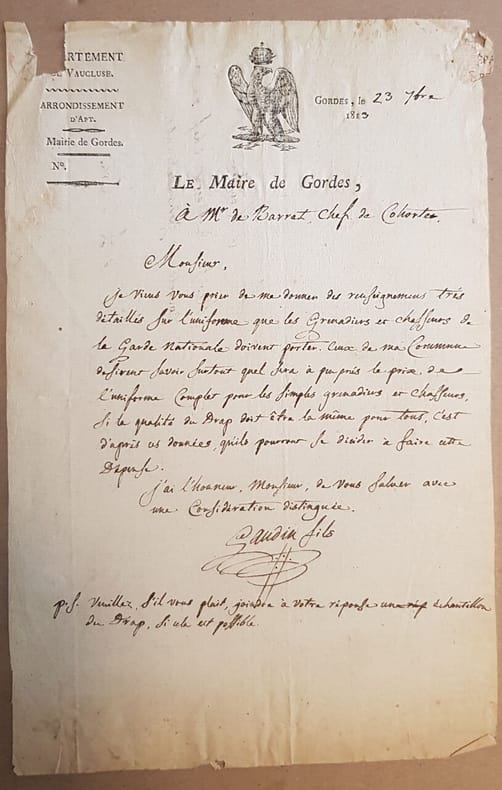 ARTEMENT
DE VAUCLUSE.
ARRONDISSEMENT
D'APT.
Mairie de Gordes.
N°.
GORDES, le 23 7bre
1813
LE Maire de Gordes,
À Mr de Barret, Chef de Cohorte.
Monsieur,
Je viens vous prier de me donner des renseignemens très
détaillés sur l'uniforme que les Grenadiers et chasseurs de
la Garde Nationale doivent porter. Ceux de ma Commune
desirent savoir surtout quel sera à peu près le prix de
l'uniforme Complet pour les simples grenadiers et chasseurs,
Si la qualité du Drap doit être la même pour tous, c'est
d'après ces données, qu'ils pourront se décider à faire cette
Dépense.
J'ai l'honneur, Monsieur, de vous saluer avec
une Considération distinguée.
Gaudin fils
p.s. Veuillez, s'il vous plait, joindre à votre réponse un échantillon
du Drap, si cela est possible.